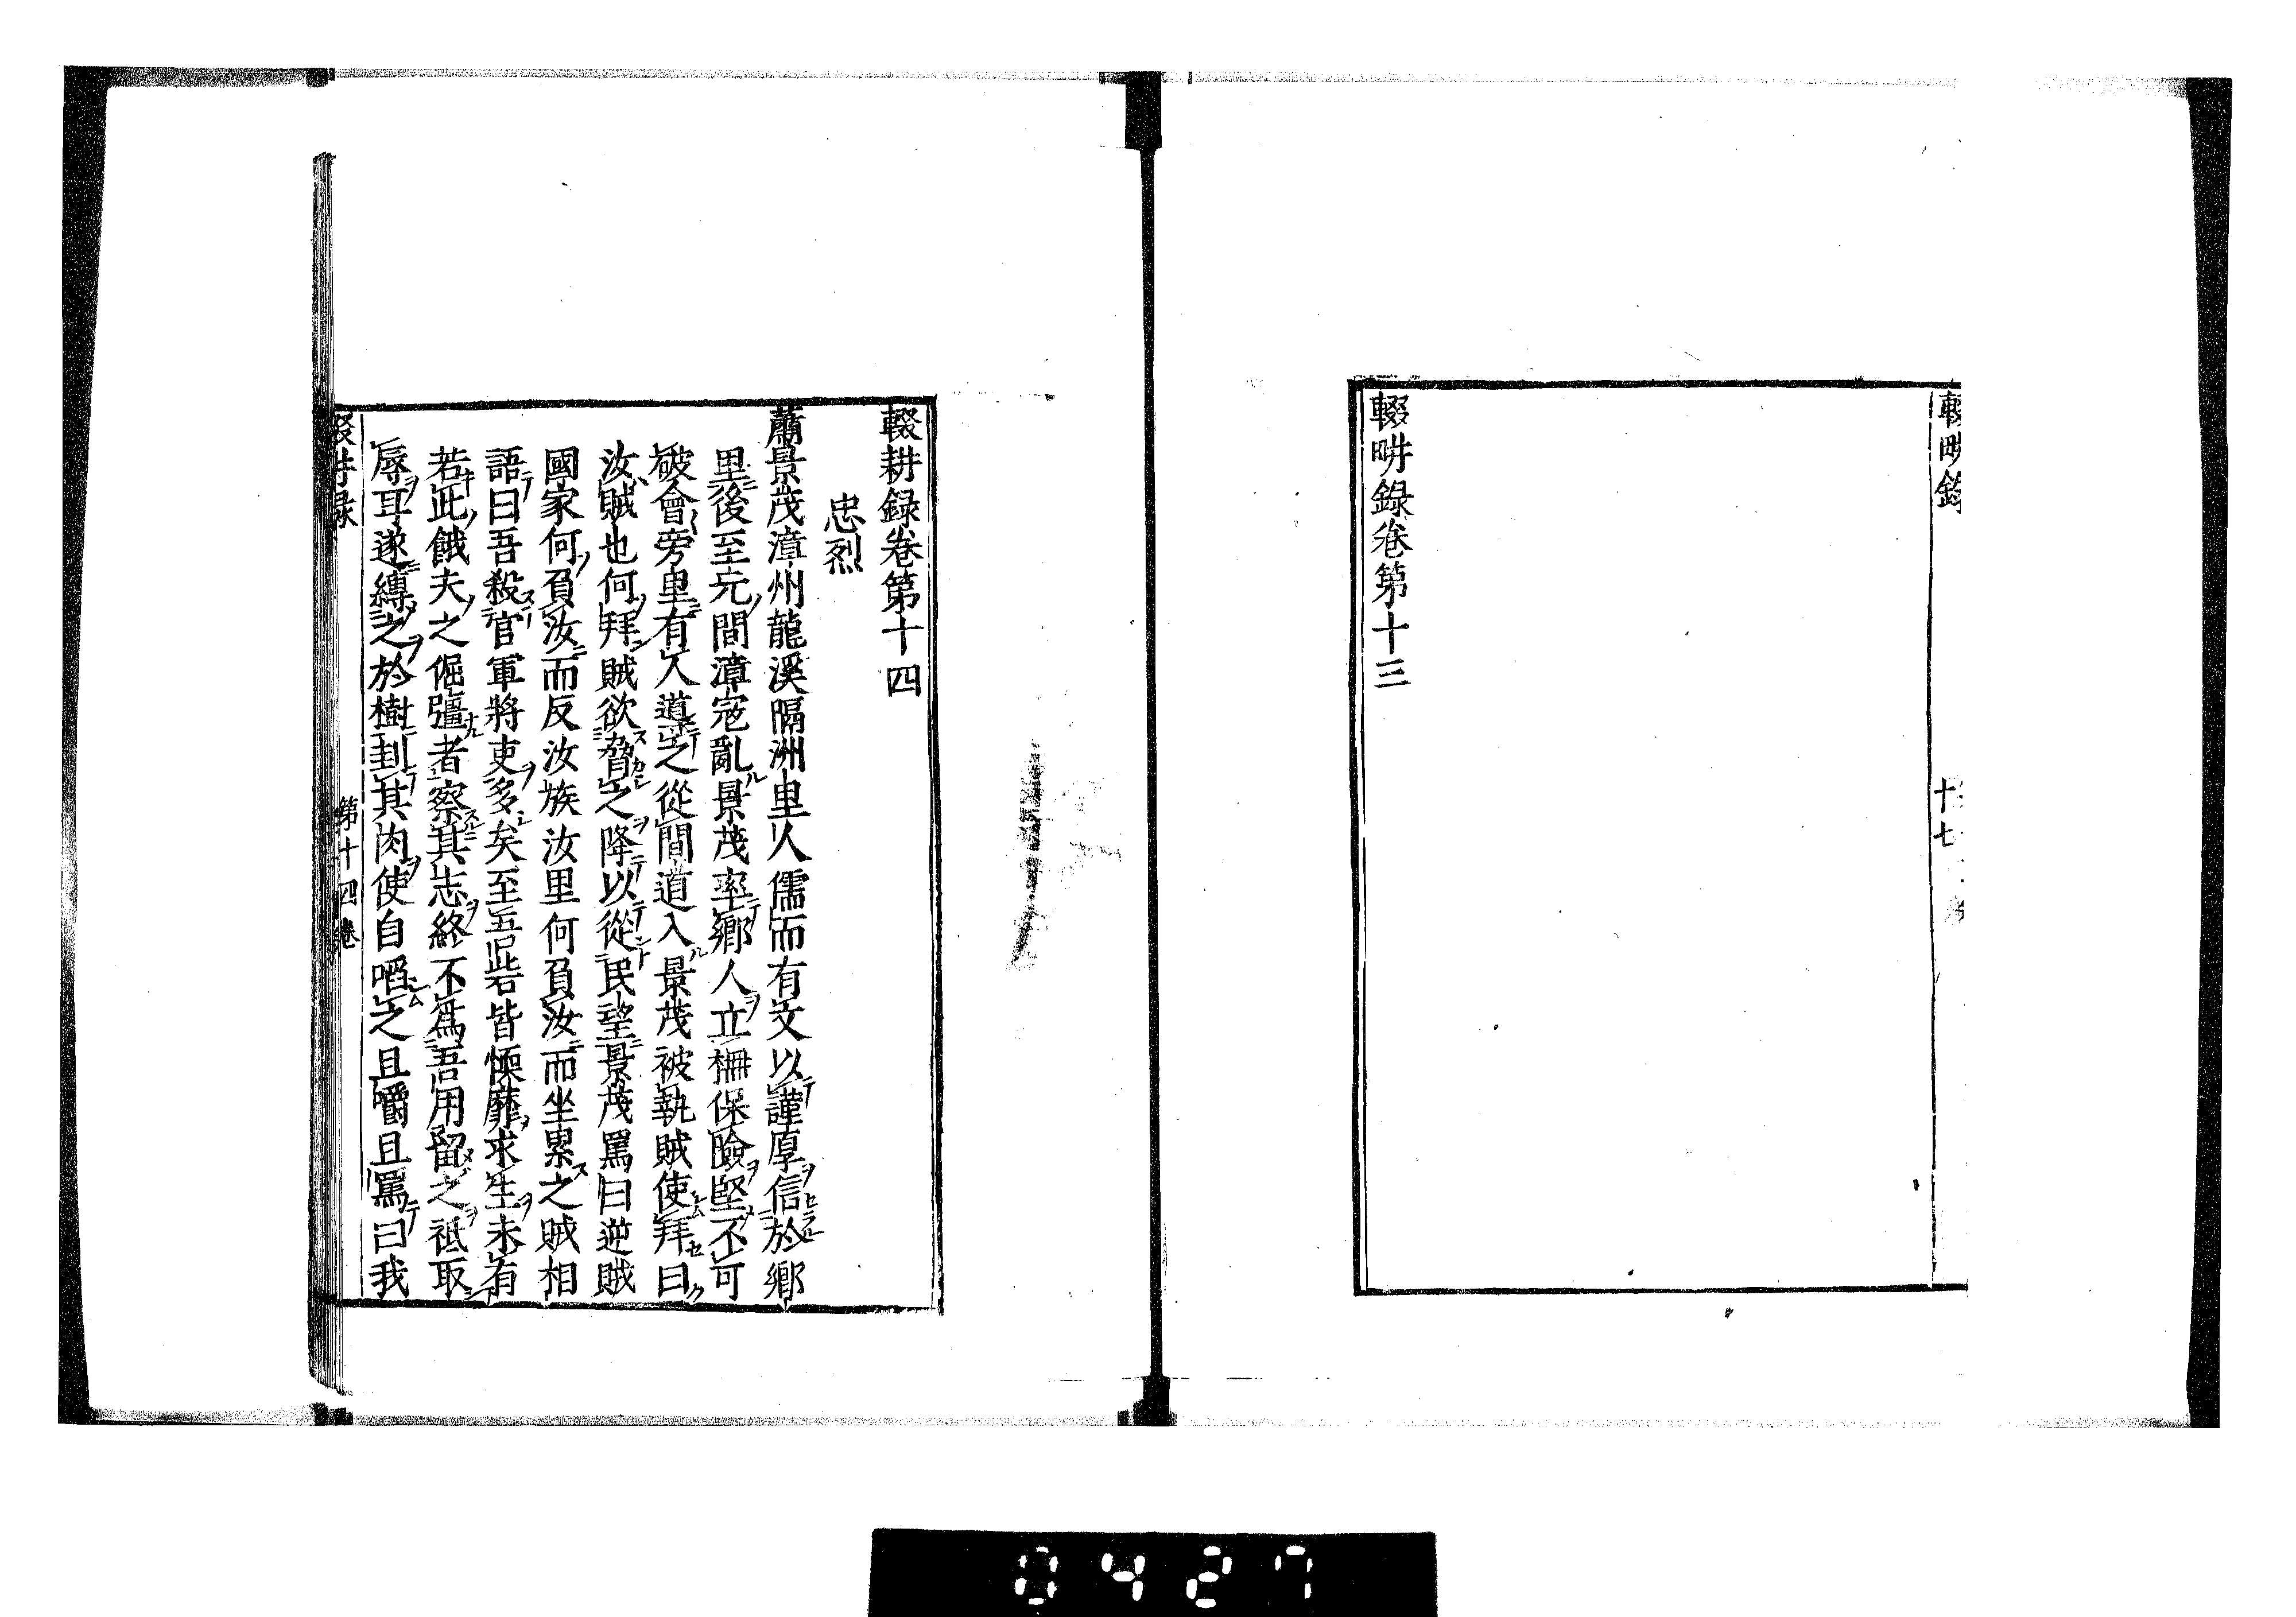 輟畊錄
十七
輟畊錄卷第十三
輟耕録卷第十四
忠烈
蕭景茂漳州龍溪隔洲里人儒而有文以謹厚信於鄉
里後至元間漳寇亂景茂率鄉人立柵保險堅不可
破會旁里有人道之從間道入景茂被執賊使拜曰
汝賊也何拜賊欲脅之降以從民望景茂罵曰逆賊
國家何負汝而反汝族汝里何負汝而坐累之賊相
語曰吾殺官軍將吏多矣至吾砦皆慄靡求生未有
若此餓夫之倔彊者察其志終不爲吾用留之祇取
辱耳遂縛之於樹刲其肉使自啗之且嚼且罵曰我
輟耕録
第十四卷
0427